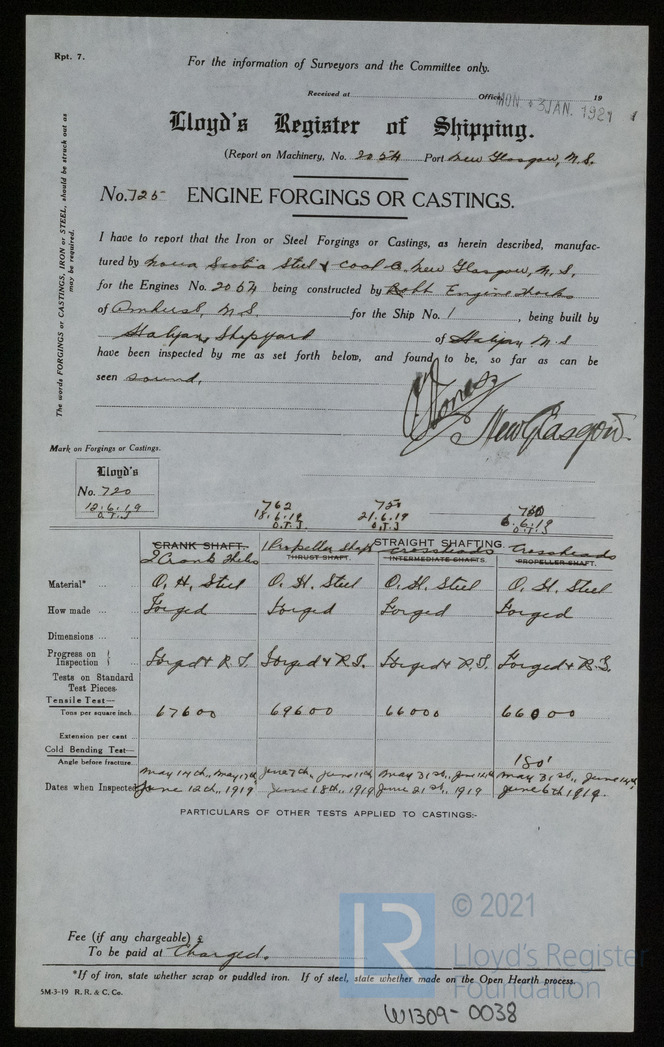 Rpt. 7.
For the information of Surveyors and the Committee only.
Received at Office MON. 3 JAN. 1921 19
Lloyd's Register of Shipping.
(Report on Machinery, No. 2054 Port New Glasgow, N.S.
No. 725 ENGINE FORGINGS OR CASTINGS.
The words FORGINGS or CASTINGS, IRON or STEEL, should be struck out as
may be required.
I have to report that the Iron or Steel Forgings or Castings, as herein described, manufac-
tured by Nova Scotia Steel & Coal Co. New Glasgow, N.S.
for the Engines No. 2054 being constructed by Robb Engine Works
of Amherst, N.S. for the Ship No. 1, being built by
Halifax Shipyard of Halifax N.S
have been inspected by me as set forth below, and found to be, so far as can be
seen sound.
New Glasgow.
Mark on Forgings or Castings.
Lloyd's
No. 720
12.6.19
O.T.J
762
18.6.19
O.T.J.
750
21.6.19
O.T.J
6.6.19
O.T.J
CRANK SHAFT. STRAIGHT SHAFTING.
THRUST SHAFT. INTERMEDIATE SHAFTS. PROPELLER SHAFT.
2 Crank Webs 1 Propeller Shaft Crossheads Crossheads
Material* O. H. Steel O. H. Steel O. H. Steel O. H. Steel
How made Forged Forged Forged Forged
Dimensions
Progress on Inspection Forged & R.T. Forged & R.T. Forged & R.T. Forged & R.T.
Tests on Standard
Test Pieces
Tensile Test—
Tons per square inch 67600 69600 66000 66000
Extension per cent
Cold Bending Test—
Angle before fracture 180°
May 14th, May 17th June 7th, June 11th May 31st, June 14th May 31st, June 14th
Dates when Inspected June 12th, 1919 June 18th, 1919 June 21st, 1919 June 6th 1919.
PARTICULARS OF OTHER TESTS APPLIED TO CASTINGS:-
Fee (if any chargeable) £
To be paid at Charged.
*If of iron, state whether scrap or puddled iron. If of steel, state whether made on the Open Hearth process.
5M-3-19 R. R. & C. Co.
LR
© 2021
Lloyd's Register
Foundation
W1309-0038